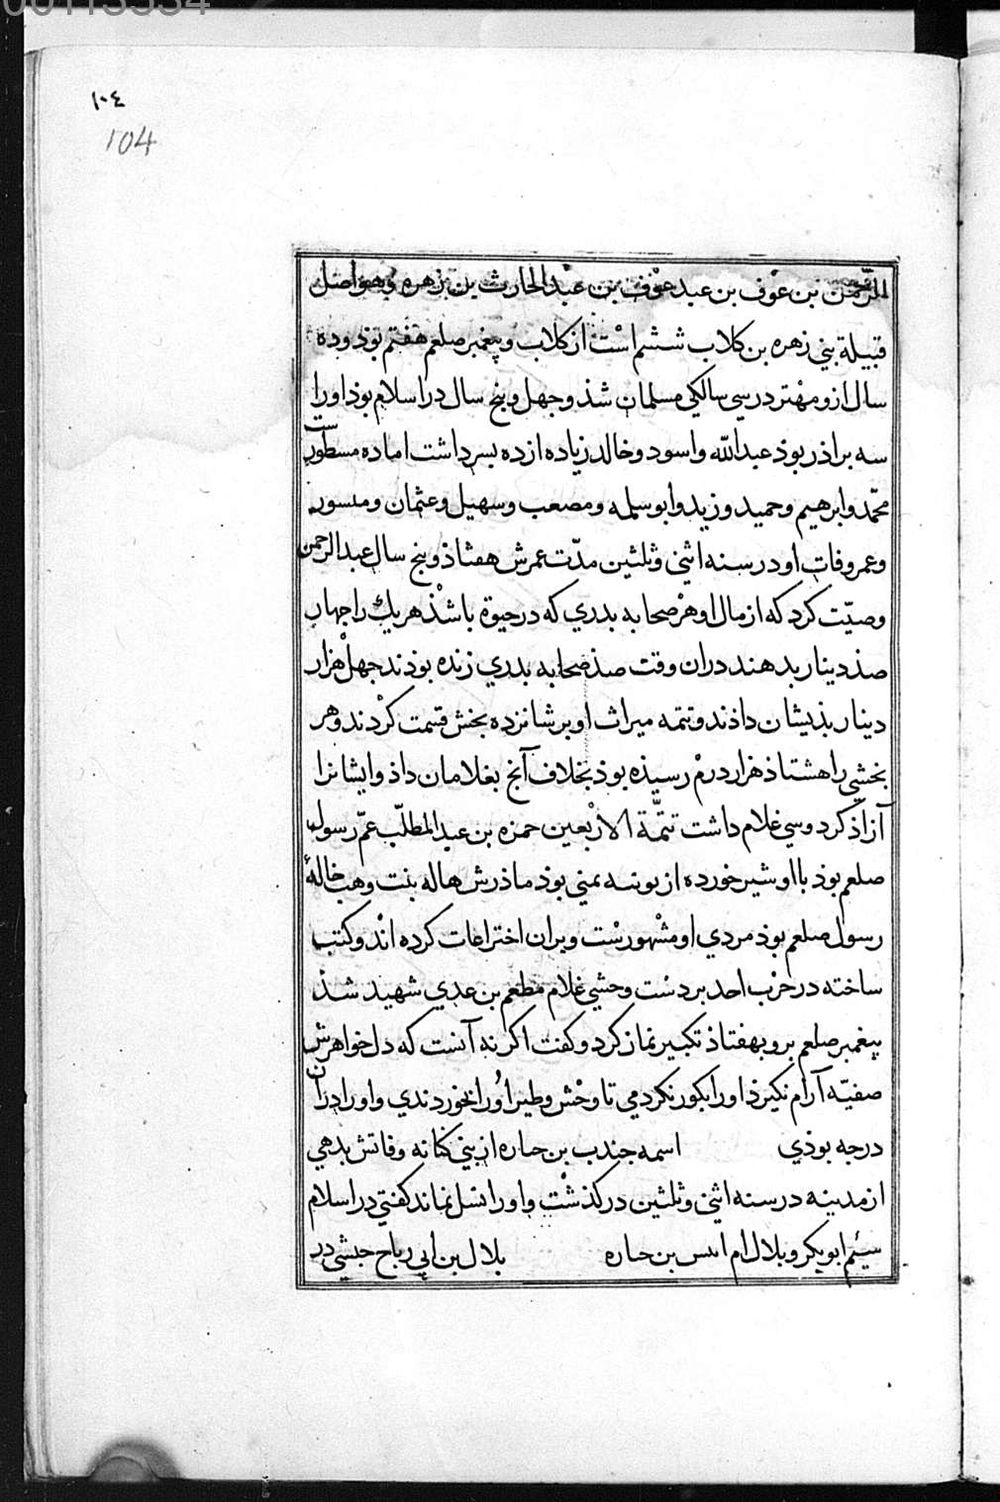 00113334
١٠٤
104
الرحمن بن عوف بن عبد عوف بن عبد الحارث بن زهره وهو اصل
قبيلة بني زهره بن كلاب ششم است از كلاب و پيغمبر صلعم هفتم بوذ و ده
سال ازو مهتر در سي سالكي مسلمان شذ و جهل و پنج سال در اسلام بوذ اورا
سه براذر بوذ عبدالله واسود وخالد زياده از ده پسر داشت اما ده مسطورست
محمّد وابرهيم وحميد وزيد وابوسلمه ومصعب وسهيل وعثمان ومسور
وعمر وفات او در سنه اثني وثلثين مدّت عمرش هفتاذ وپنج سال عبدالرحمن
وصيّت كرد كه از مال او هر صحابه بدري كه در حيوة باشذ هر يك را جهار
صذ دينار بدهند دران وقت صذ صحابه بدري زنده بوذند جهل هزار
دينار بذيشان داذند و تتمه ميراث او بر شانزده بخش قسمت كردند و هر
بخشي را هشتاذ هزار درم رسيذه بوذ بخلاف آنج بغلامان داذ و ايشانرا
آزاذ كرد وسي غلام داشت تتمّة الاربعين حمزه بن عبدالمطلّب عمّ رسول
صلعم بوذ با او شير خورده از ثويبه يمني بوذ ماذرش هاله بنت وهب خالۀ
رسول صلعم بوذ مردي او مشهورست و بران اختراعات كرده اند و كتب
ساخته در حرب احد بر دست وحشي غلام مطعم بن عدي شهيد شذ
پيغمبر صلعم برو بهفتاذ تكبير نماز كرد و كفت اكر نه آنست كه دل خواهرش
صفيّه آرام نكيرذ اورا بكور نكردمي تا وحش وطير اورا بخوردندي واورا دران
درجه بوذي اسمه جندب بن حاره از بني كنانه وفاتش بدهي
از مدينه در سنه اثني وثلثين در كذشت و اورا نسل نماند كفتي در اسلام
سيّم ابوبكر و بلال ام انيس بن حاره بلال بن ابي رباح حبشي در